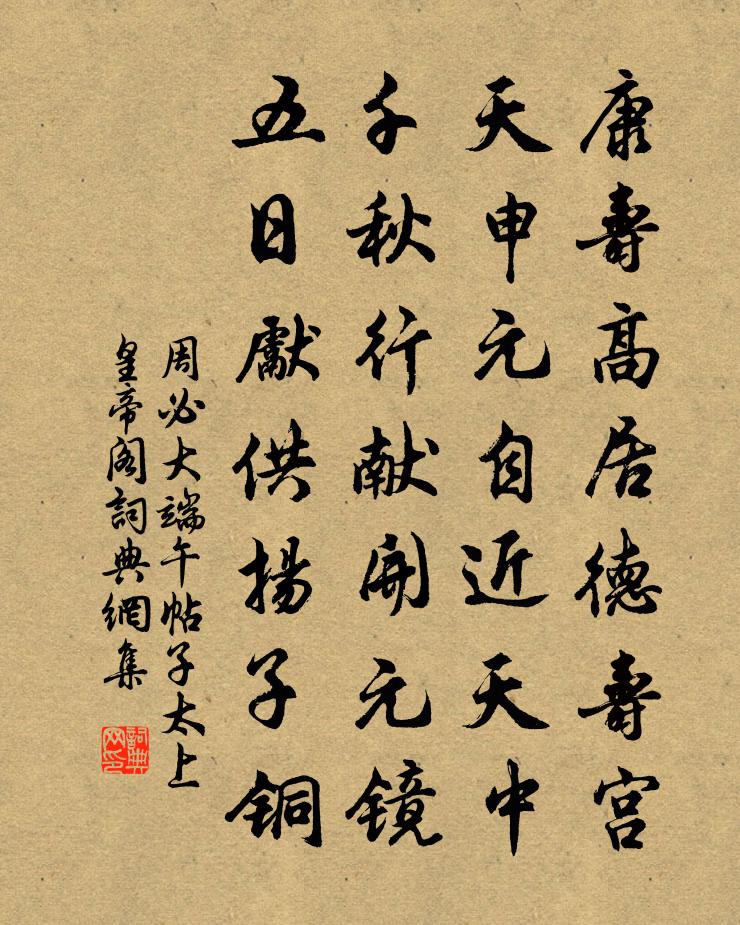 康壽高居德壽宮
天申元自近天中
千秋行献開元镜
五日獻供揚子铜
周必大端午帖子太上
皇帝阁詞典網集
詞典
网印